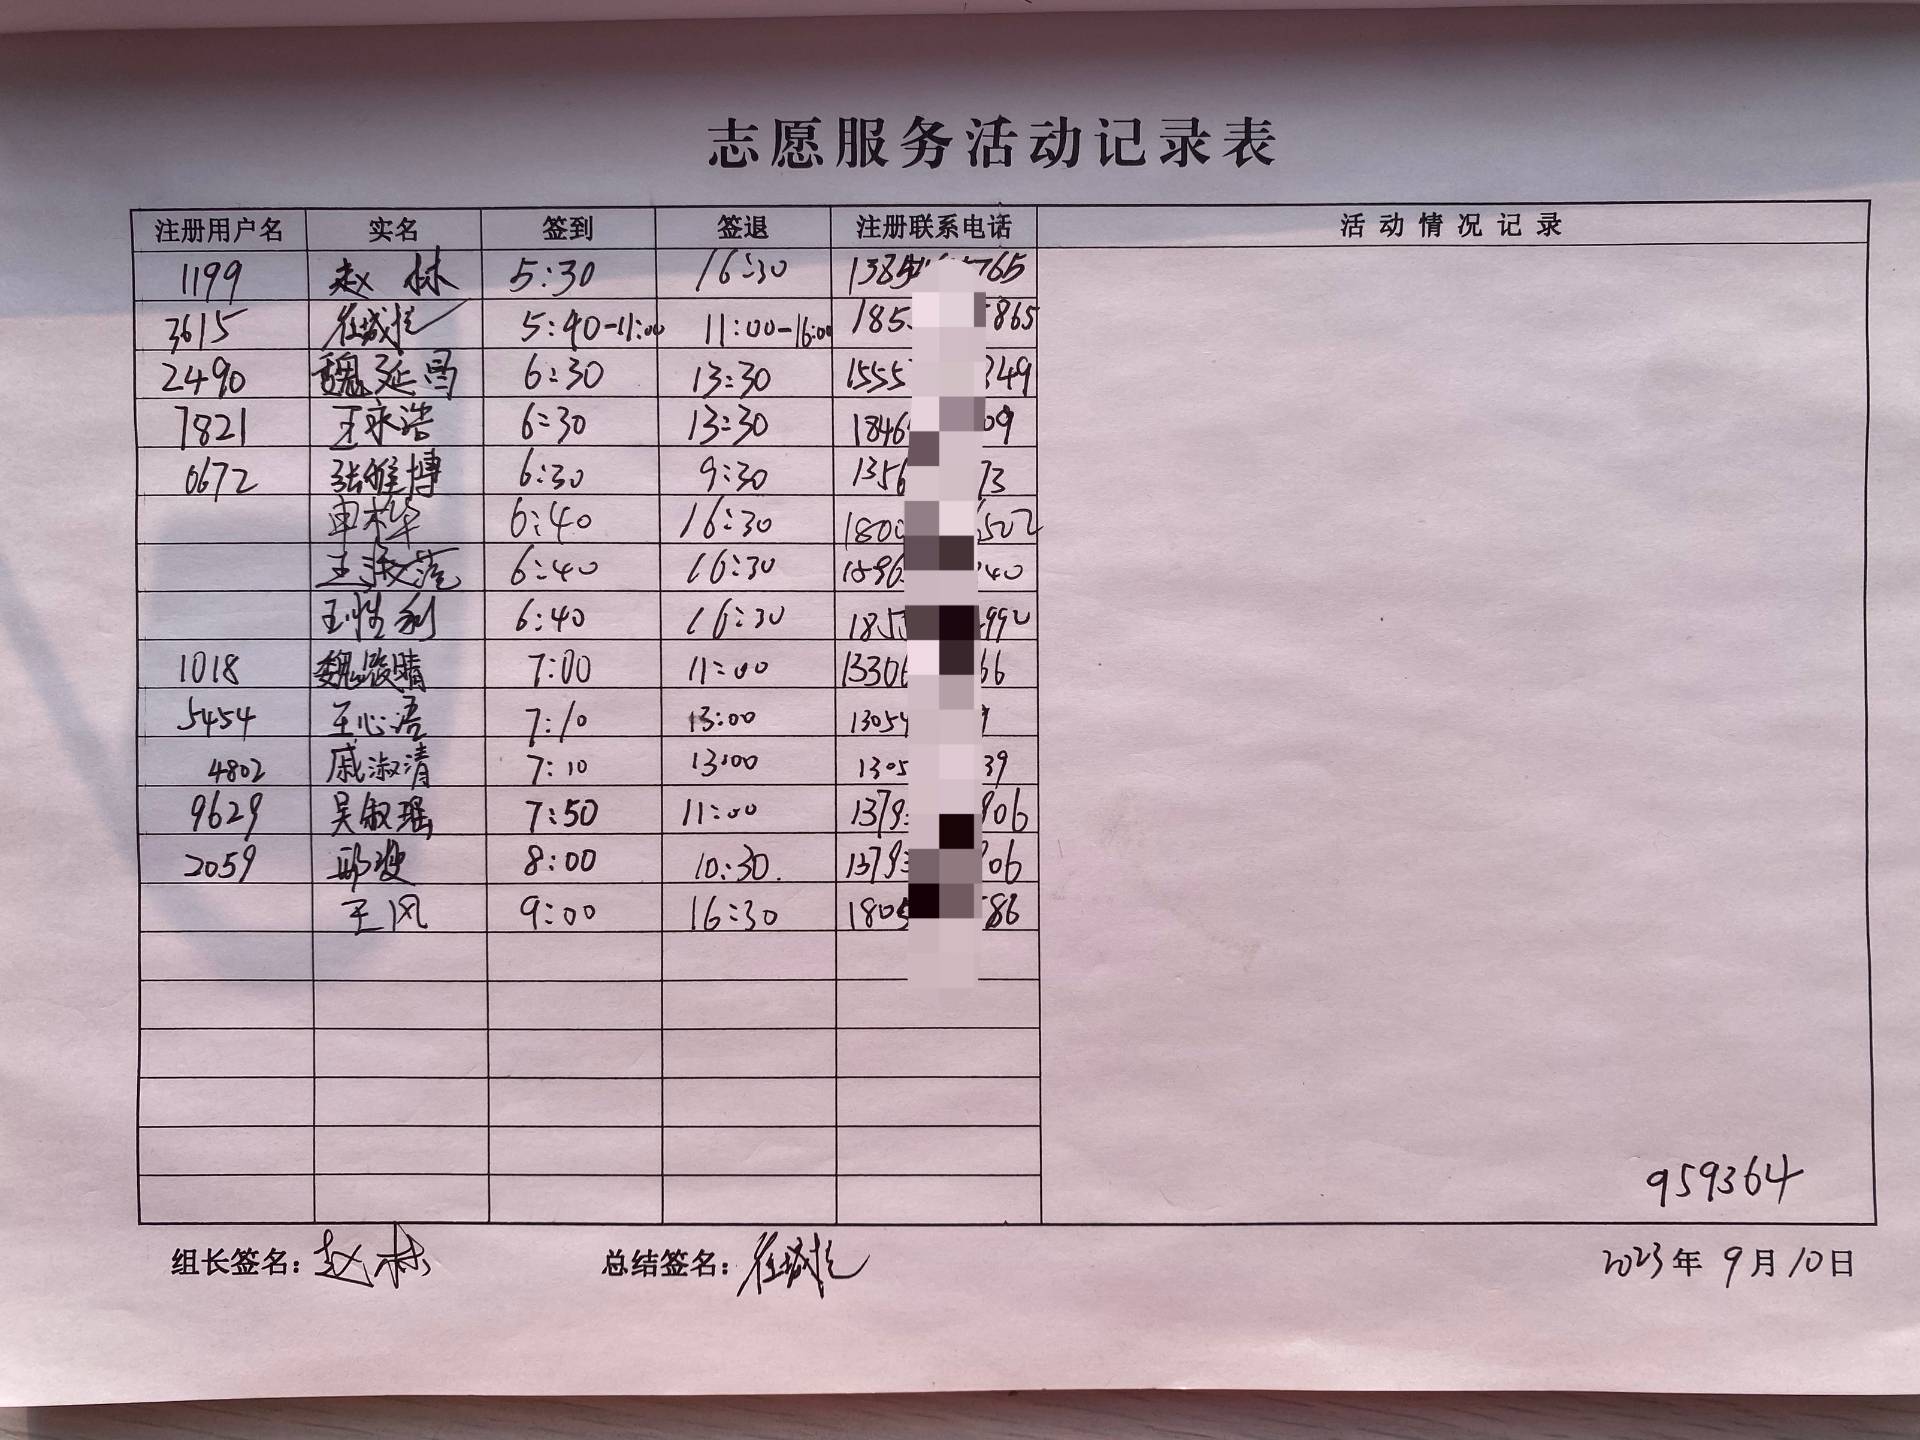 志愿服务活动记录表
注册用户名 实名 签到 签退 注册联系电话 活动情况记录
1199 赵林 5:30 16:30 1385 765
3615 5:40-11:00 11:00-16:00 185 865
2490 魏延昌 6:30 13:30 1555 349
7821 王永浩 6:30 13:30 1846 09
0672 张雅博 6:30 9:30 1356 73
6:40 16:30 1800 502
王淑范 6:40 16:30 1896 40
王性利 6:40 16:30 185 990
1018 魏筱晴 7:00 11:00 1330 66
5454 王心语 7:10 13:00 1305
4802 戚淑清 7:10 13:00 1305 39
9629 吴俶瑶 7:50 11:00 1379 906
2059 邱波 8:00 10:30. 1379 06
王风 9:00 16:30 1805 86
959364
组长签名：赵林 总结签名： 2023年9月10日